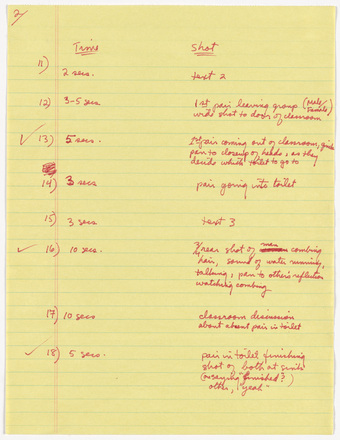 2
Time Shot
11) 2 secs. text 2
12) 3-5 secs 1st pair leaving group (male/
female)
wide shot to door of classroom
13) 5 secs. 1st pair coming out of classroom,
pan to closeup of heads, as they
decide which toilet to go to
14) 3 secs pair going into toilet
15) 3 secs text 3
16) 10 secs. rear shot of combing
hair, sound of water running,
talking, pan to others reflection
watching combing
17) 10 secs classroom discussion
about absent pair in toilet
18) 5 secs. pair in toilet finishing
shot of both at sinks
(one saying "finished"?)
other, "yeah"